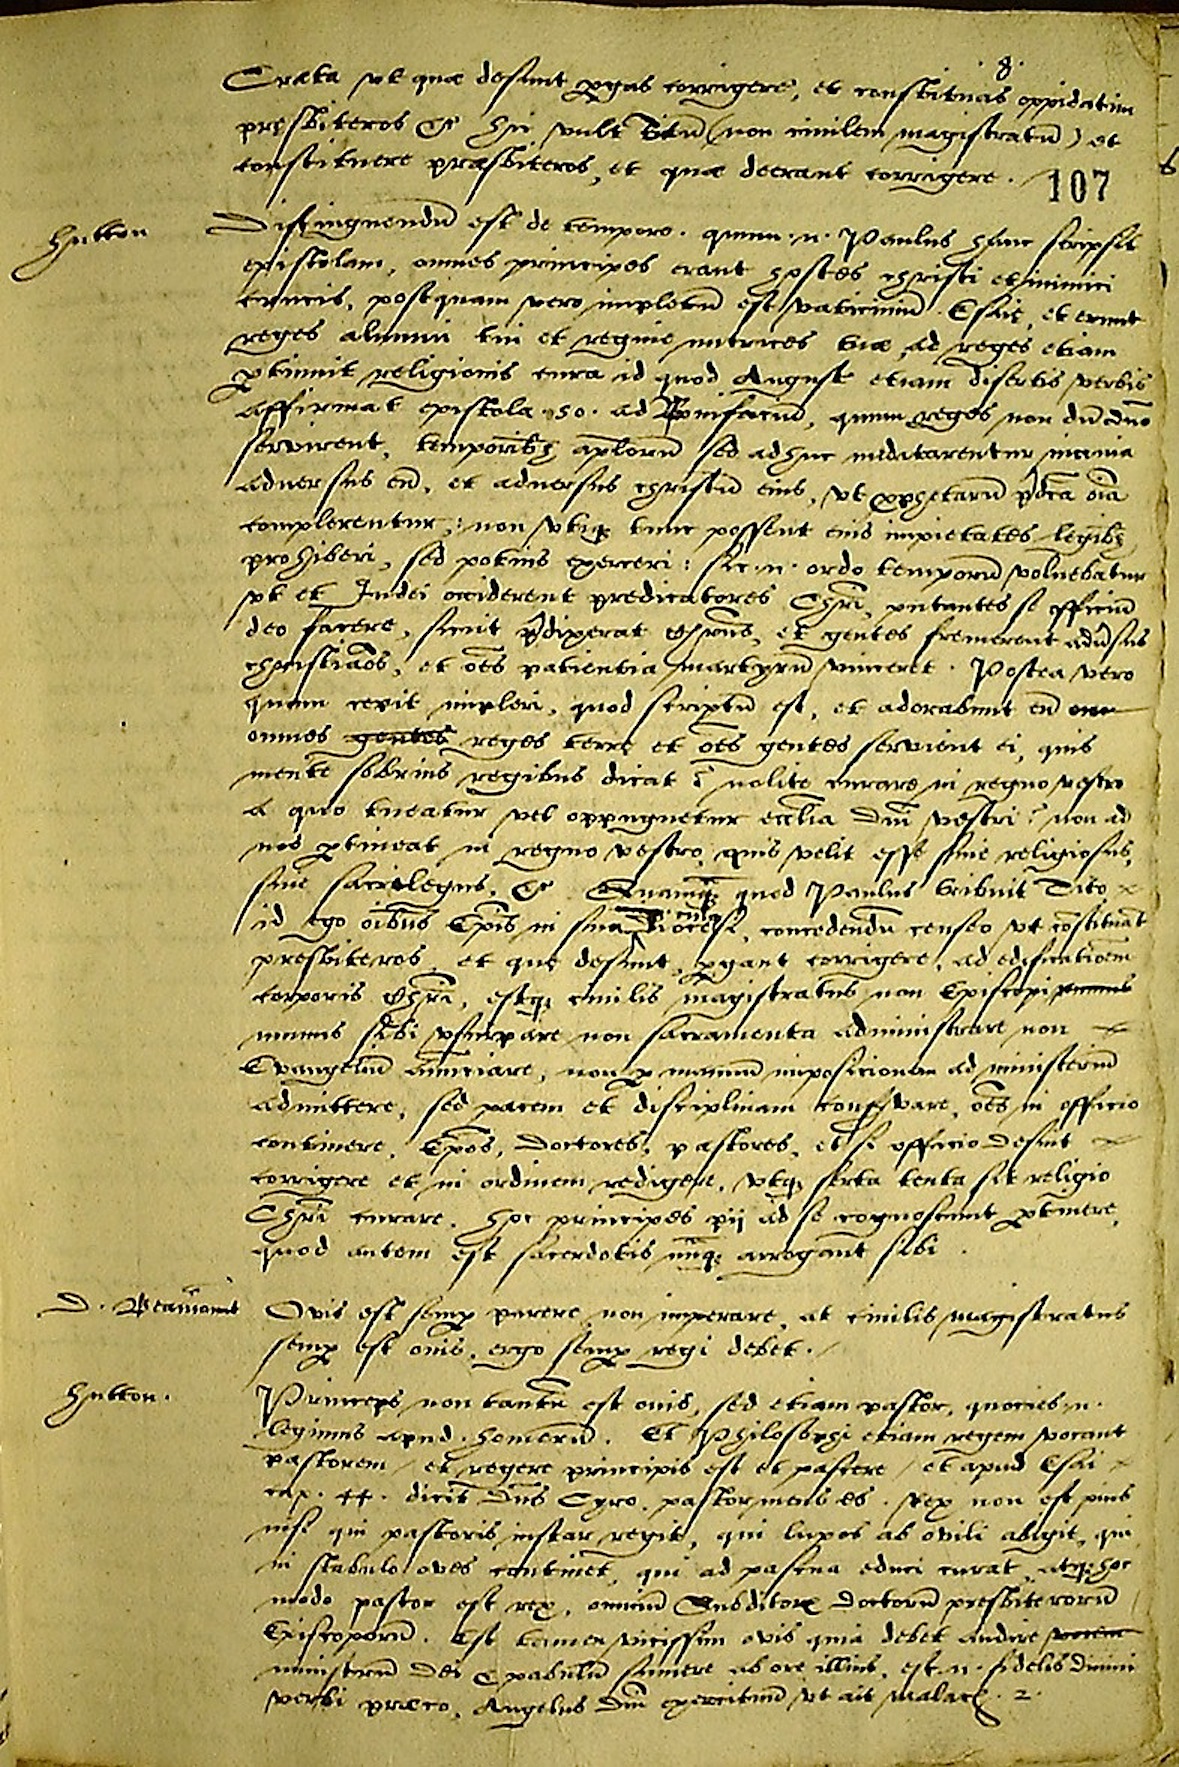 8.
Creta vt quæ desunt pgas corrigere, et constituas oppidatim
presbiteros &c hic vult Titū (non ciuilem magistratū) et
constituere præsbiteros, et quæ deerant corrigere.
107
Hutton
Distinguendū est de tempore. quum .n. Paulus hanc scripsit
epistolam, omnes principes erant hostes christi et inimici
crucis, postquam vero impletū est vaticiniū Esaie, et erunt
reges alumni tui et regine nutrices tuæ, ad reges etiam
ptinuit religionis cura id quod August etiam disertis verbis
affirmat epistola .50. ad Bonifaciū, quum reges non dū dn̄o
servirent, temporibꝫ aplorū sed adhuc meditarentur inania
aduersus en̄, et aduersus christū eius, vt pphetarū pdca oīa
complerentur; non vtiqꝫ tunc possent eius impietates legibꝫ
prohiberi, sed potius exerceri: sic .n. ordo temporū voluebatur
vt et Iudei occiderent predicatores Chrī, putantes se officiū
deo facere, sicut pdixerat Chrūs, et gentes fremerent adūsus
christiāos, et oēs patientia martyrū vinceret. Postea vero
quum cepit impleri, quod scriptū est, et adorabunt eū
omnes gentes reges terre et oēs gentes servient ei, quis
mente sobrius regibus dicat ? nolite curare in regno vestro
a quo tueatur vel oppugnetur ecclīa Dnī vestri? non ad
vos ptineat in regno vestro quis velit esse siue religiosus,
siue sacrilegus. &c Quamqꝫ quod Paulus tribuit Tito
id ego oībus Epīs in sua Diocesi, concedendū censeo vt cōstituāt
presbiteros, et que desunt, pgant corrigere, ad edificatiōem
corporis Chrī, estqꝫ ciuilis magistratus non Episcopi
munus sibi vsurpare non sacramenta administrare non
Evangeliū añunciare, non p manuū imposicionem ad ministeriū
admittere, sed pacem et disciplinam consvare, oēs in officio
continere, Epōs, Doctores, pastores, et si officio desint
corrigere et in ordinem redigere, vtqꝫ serta tecta sit religio
Chrī curare. hoc principes pij ad se cognoscunt ptinere,
quod autem est sacerdotis nūqꝫ arrogant sibi.
D. Beaumont
Ovis est semp parere non imperare, at ciuilis magistratus
semp est ouis, ergo semp regi debet.
Hutton.
Princeps non tantū est ouis, sed etiam pastor, quocies .n.
legimus apud homerū. Et Philosophi etiam regem vocant
pastorem / et regere principis est et pascere / et apud Esai
cap. 44. dicit Dn̄s Cyro, pastor meus es. Rex non est pius
nisi qui pastoris instar regit, qui lupos ab ovili abigit, qui
in stabulo oves continet, qui ad pascua educi curat, atqꝫ hoc
modo pastor est rex, omniū Subditorꝝ Doctorū presbiterorū
Episcoporū. Est tamen vicissim ovis quia debet audire
ministrū Dei & pabulū sumere ab ore illius, est .n. fidelis diuini
verbi præco, Angelus Dnī exercituū vt ait Malach. 2.